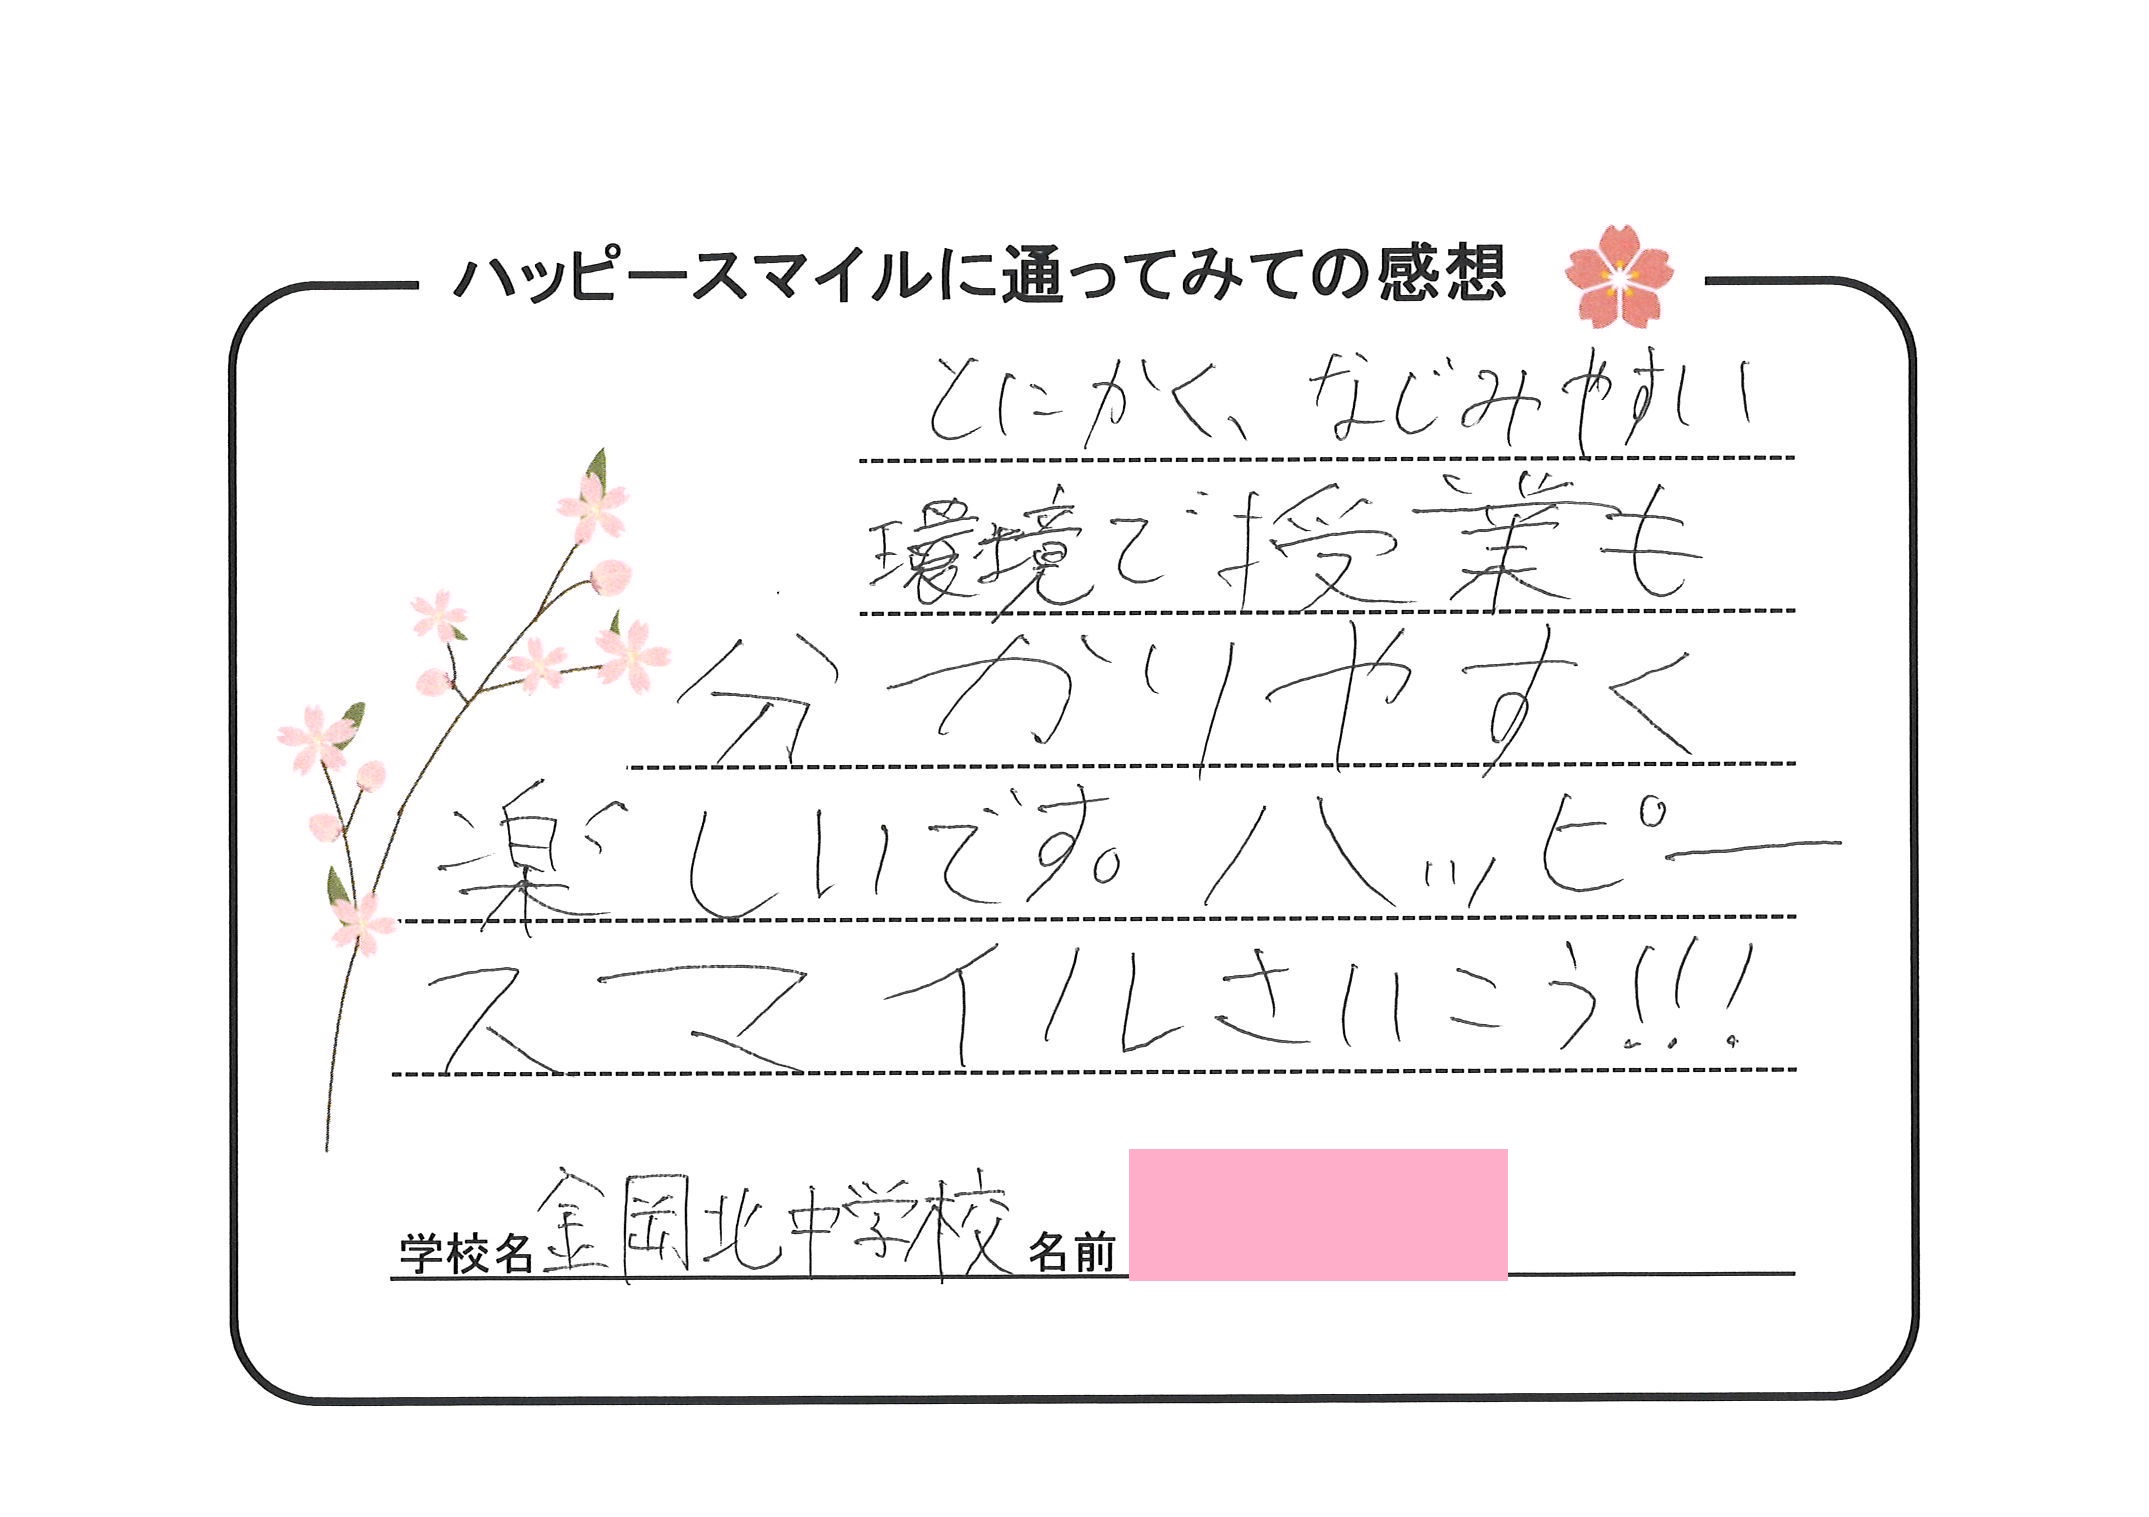 ハッピースマイルに通ってみての感想
とにかく、なじみやすい
環境で授業も
分かりやすく
楽しいです。ハッピー
スマイルさいこう!!!
学校名 金岡北中学校 名前